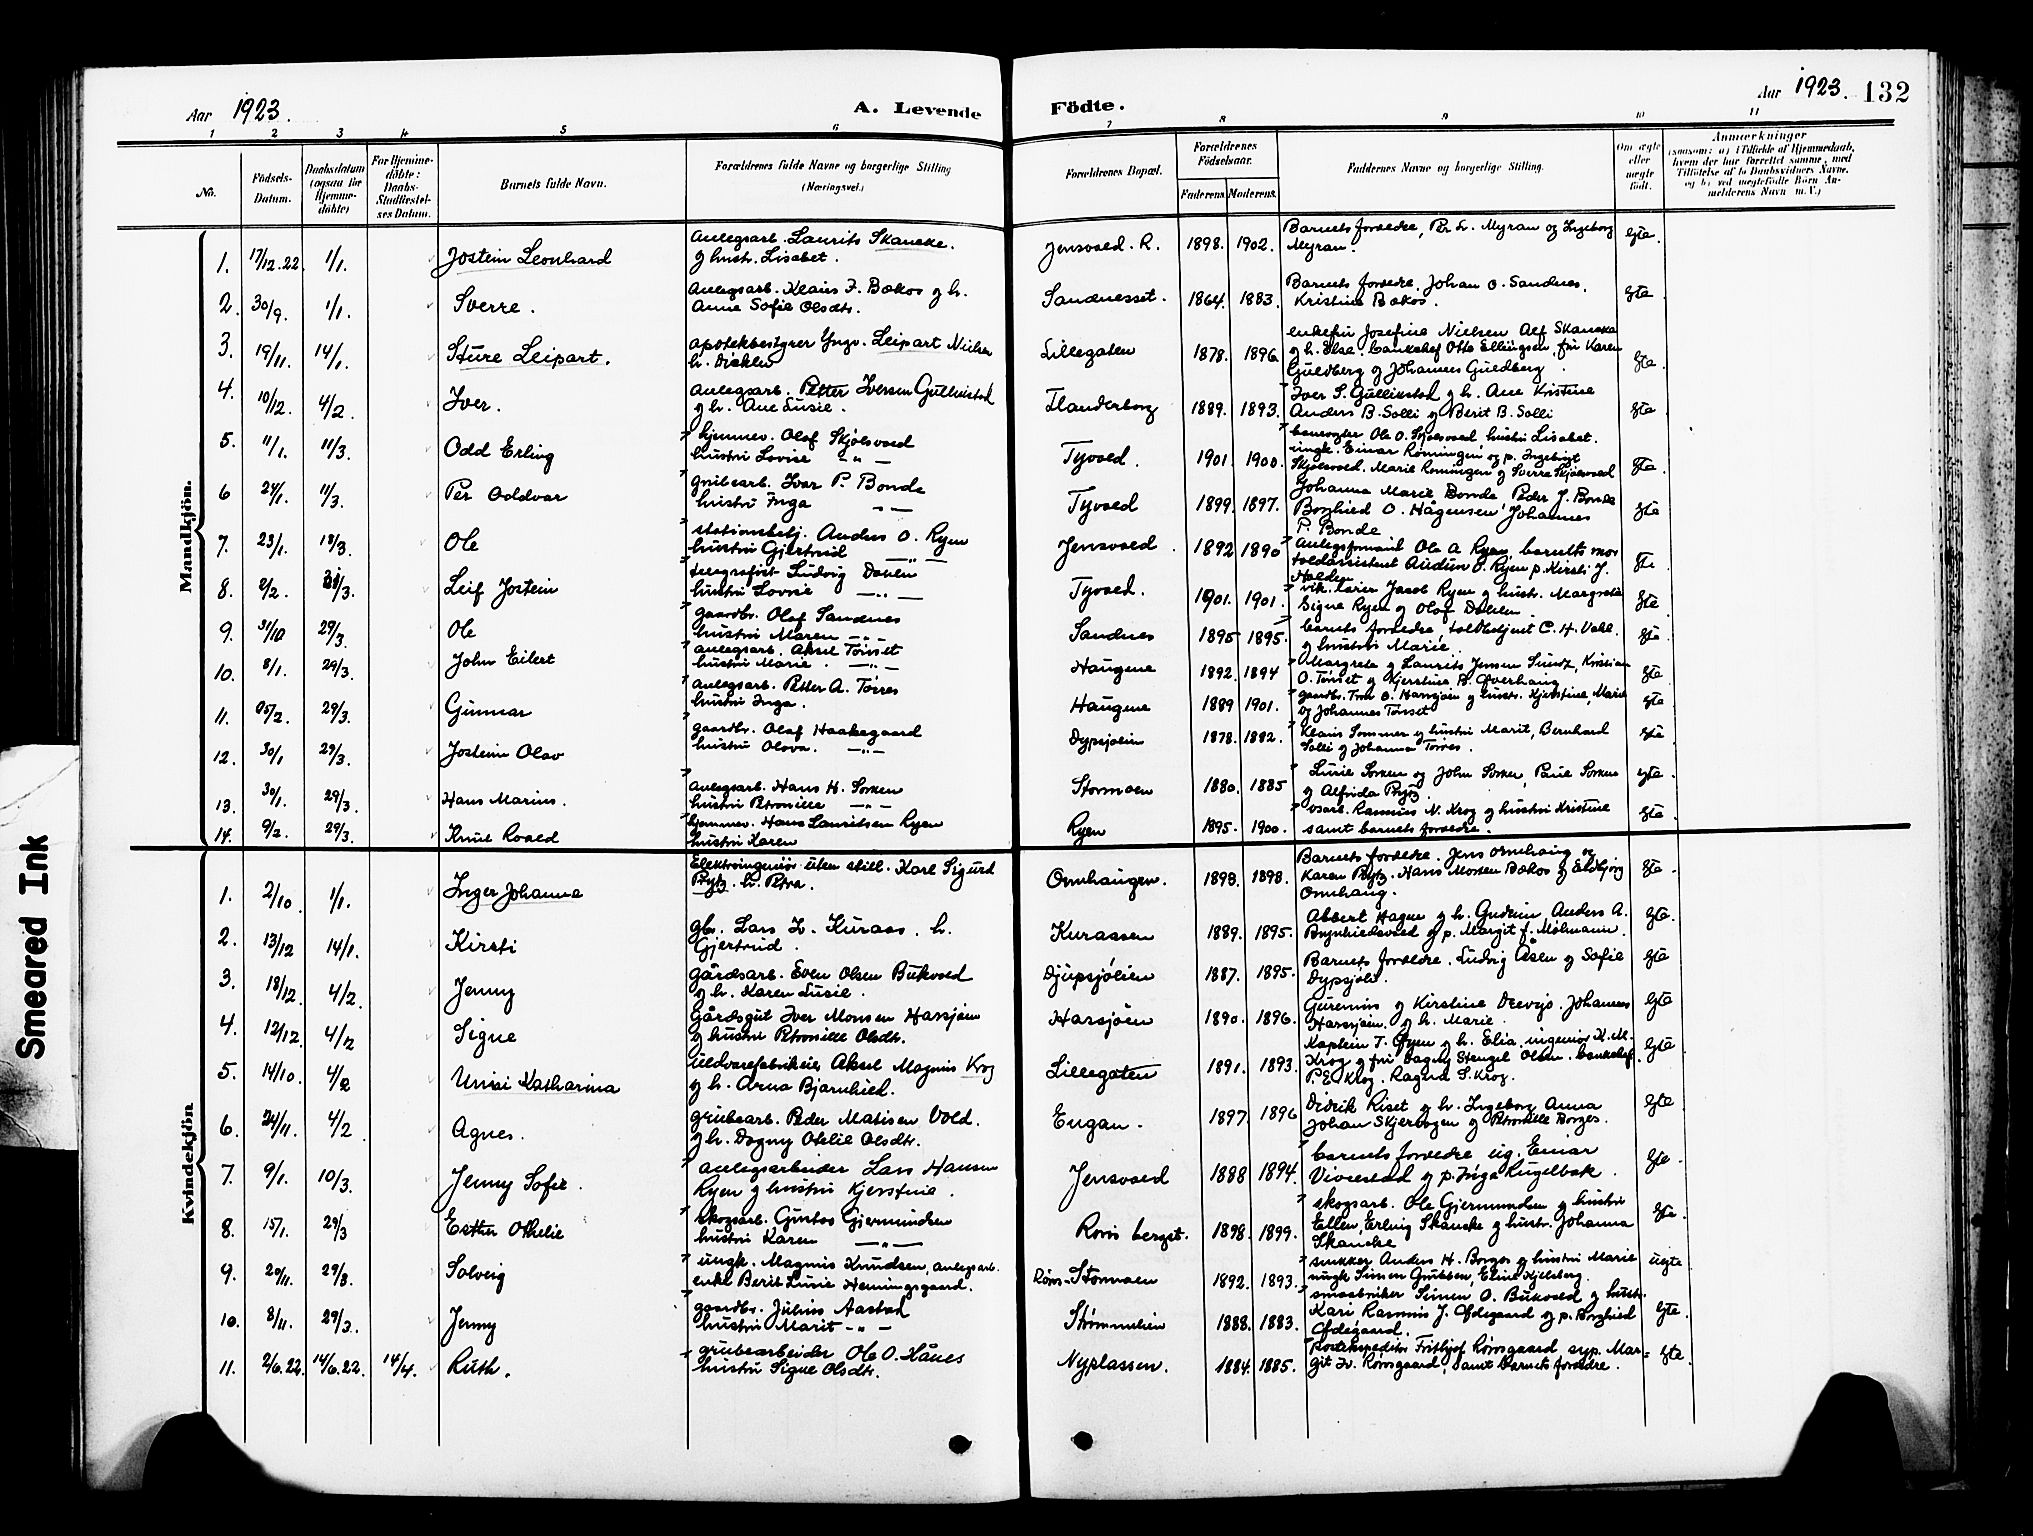 Aar 1923. A. Levende Födte. Aar 1923. 132
1 2 3 4 5 6 7 8 9 10 11
No. Födsels-Datum. Daabsdatum (ogsaa for Hjemme-döbte) For Hjemme-döbte: Daabs-Stadfæstel-ses Datum. Barnets fulde Navn. Forældrenes fulde Navne og borgerlige Stilling (Næringsvei.) Forældrenes Bopæl. Forældrenes Födselsaar. Faderens Moderens. Faddernes Navne og borgerlige Stilling. Om ægte eller uægte födt. Anmærkninger (saasom: a) i Tilfælde af Hjemmedaab, hvem der har forrettet samme, med Tilföielse af to Daabsvidners Navne, og b) ved uægtefödte Börn An-melderens Navn m. V.)
Mandkjön.
1. 17/12.22. 1/1. Jostein Leonhard Anlegsarb. Laurits Skancke.
g hustr. Lisabet. Jensvold. R. 1898. 1902. Barnets forældre, Per L. Myran og Ingeborg
Myran. Egte.
2. 30/9. 1/1. Sverre. Anlegsarb. Klaus J. Bakos g h.
Anne Sofie Olsdtr. Sandnesset. 1864. 1883. Barnets forældre, Johan O. Sandnes,
Kristine Bakos. Egte.
3. 19/11. 14/1. Sture Leipart. Apotekbestyrer Yngv. Leipart Nielsen
h. Dickten Lillegaten 1878. 1896. enkefru Josefine Nielsen Alf Skancke
g h. Else, bankchef Otto Ellingsen, fru Karen
Guldberg g Johannes Guldberg. Egte
4. 10/12. 4/2. Iver. Anlegsarb. Petter Iversen Gullikstad
g h. Ane Lusie. Flanderborg 1889. 1893. Iver S. Gullikstad g h. Ane Kristine
Anders B. Solli g Berit B. Solli Egte
5. 11/1. 11/3. Odd Erling hjemmev. Olof Skjølsvold
hustru Lovise — " — Tyvold. 1901. 1900. Ole O. Skjølsvold, hustru Lisabet.
ungk. Einar Rønningen og p. Ingebrigt
Skjølsvold. Marie Rønningen g Sverre Skjølsvold Egte
6 24/1. 11/3. Per Oddvar grubearb. Ivar P. Bonde
hustru Inga — " — Tyvold 1899. 1897. Johanna Marie Bonde Peder J. Bonde
Borghild O. Hågensen, Johannes
P. Bonde Egte
7. 23/1. 18/3. Ole stationsbetj. Anders O. Ryen
hustru Gjertrud — " — Jensvold. 1892 1890 Anlegsformand Ole A Ryen, barnets mor
toldassistent Audun O. Ryen p. Kirsti J.
Halden Egte
8. 2/2. /3. Leif Jostein telegrafist Ludvig Dahlen
hustru Lovise — " — Tyvold. 1901. 1901. vik. lærer Jacob Ryen g hustr. Margrete
Signe Ryen g Olaf Dahlen. Egte
9. 31/10 29/3. Ole gaardbr. Olaf Sandnes
hustru Maren — " — Sandnes 1895 1895. barnets forældre, toldbetjent C. H. Vahl.
g hustru Marie. Egte
10. 8/1. 29/3. John Eilert anlegsarb. Aksel Tønset
hustru Marie. — " — Haugene 1892. 1894 Margrete g Laurits Jensen Sund, Kristian
O. Tønset g Kjerstine B. Øverhaug Egte
11. 05/2. 29/3. Gunnar anlegsarb. Petter A. Tørres
hustru Inga. Haugene 1889 1901. gaardbr. Tron O. Harsjøen g hustr. Kjerstine, Marie
og Johannes Tønset Egte
12. 30/1. 29/3. Jostein Olav gaardbr. Olaf Haakegaard
hustru Olova. — " — Dypsjølien 1878. 1882. Klaus Sommer g hustru Marit, Bernhard
Solli g Johanna Tørres. Egte
13. 30/1. 29/3. Hans Marius. Anlegsarb. Hans H. Sorken
hustru Petronille — " — Stormoen 1880. 1885 Lusie Sorken og John Sorken, Paul Sorken
g Alfrida Prytz. egte.
14. 9/2. 29/3. Knut Roald hjemmev. Hans Lauritsen Ryen
hustru Karen Ryen 1895. 1900. Rasmus N. Krog g hustru Kristine
samt barnets forældre. Egte.
Kvindekjön
1. 2/10 1/1. Inger Johanna Elektroingeniør uten still. Karl Sigurd
Prytz. h. Petra. Ormhaugen. 1898. 1898. Barnets forældre. Jens Ormhaug og
Karen Prytz. Hans Morten Bakos g Eldbjørg
Ormhaug. Egte.
2. 13/12 14/1. Kirsti gbr. Lars L. Kuraas. h.
Gjertrud. Kurassen 1889. 1895. Albert Hagen g h. Gudrun, Anders A.
Brynhildsvold g p. Margit f. Mølmann. Egte.
3. 18/12. 4/2. Jenny gårdsarb. Even Olsen Bukvold
g h. Karen Lusie. Djupsjølien 1887. 1895. Barnets forældre. Ludvig Åsen g Sofie
Dypsjøli. Egte
4. 12/12. 4/12 Signe Gårdsgut Iver Monsen Harsjøen
g hustru Petronille Olsdtr. Harsjøen 1890. 1896. Gurenius g Kirstine Drevsjø. Johannes
Harsjøen. g h. Marie. Egte
5. 14/10. 4/2 Unni Katharina Uldvarefabrikeier Aksel Magnus Krog
g h. Arna Bjarnhild. Lillegaten 1891. 1893. Kaptein T. Øyen g h. Elia, ingeniør K. M.
Krog g fru Dagny Stengel Olsen. bankchef
P. E Krog. Ragna S. Krog. Egte
6. 24/11. 4/2 Agnes. Grubearb. Peder Matisen Vold.
g h. Dagny Otelie Olsdtr. Engan. 1897. 1896 Didrik Riset g h. Ingeborg Anna
Johan Skjerbogen g Petronille Borges. Egte
7. 9/1. 10/3. Jenny Sofie. Anlegsarbeider Lars Hansen
Ryen g hustru Kjerstine. Jensvold 1888 1894. barnets forældre ug. Einar
Vivestad g p. Inga Kugelbak. Egte.
8. 15/1. 29/3 Esther Othelie skogsarb. Gustav Gjermundsen
hustru Karen — " — Røros berget. 1898. 1899. skogsarb. Ole Gjermundsen g hustru
Ellen, Erling Skancke g hustr. Johanna
Skancke Egte.
9. 20/11. 29/3. Solveig ungk. Magnus Knudsen, anlegsarb.
enke Berit Lusie Henningsgaard. Røros-Stormoen 1892. 1893. snekker Anders H. Borges g hustru Marie
ungk Simen Grubben, Eline Kjelsberg. uegte
10. 8/11. 29/3. Jenny gaardbr. Julius Aastad
hustru Marit — " — Strømmelien 1888. 1883. smaabruker Simen O. Bukvold g hustr.
Kari Rasmus J. Ødegaard g p. Borghild
Ødegaard. Egte.
11. 2/6.22. 14/6.22. 14/4. Ruth. grubearbeider Ole O. Hånes
hustru Signe Olsdtr. Nyplassen. 1884. 1885. Postekspeditør Fritjof Rørosgaard, syp. Mar-
git Fr. Rørosgaard, samt barnets forældre. Egte.
Smeared Ink